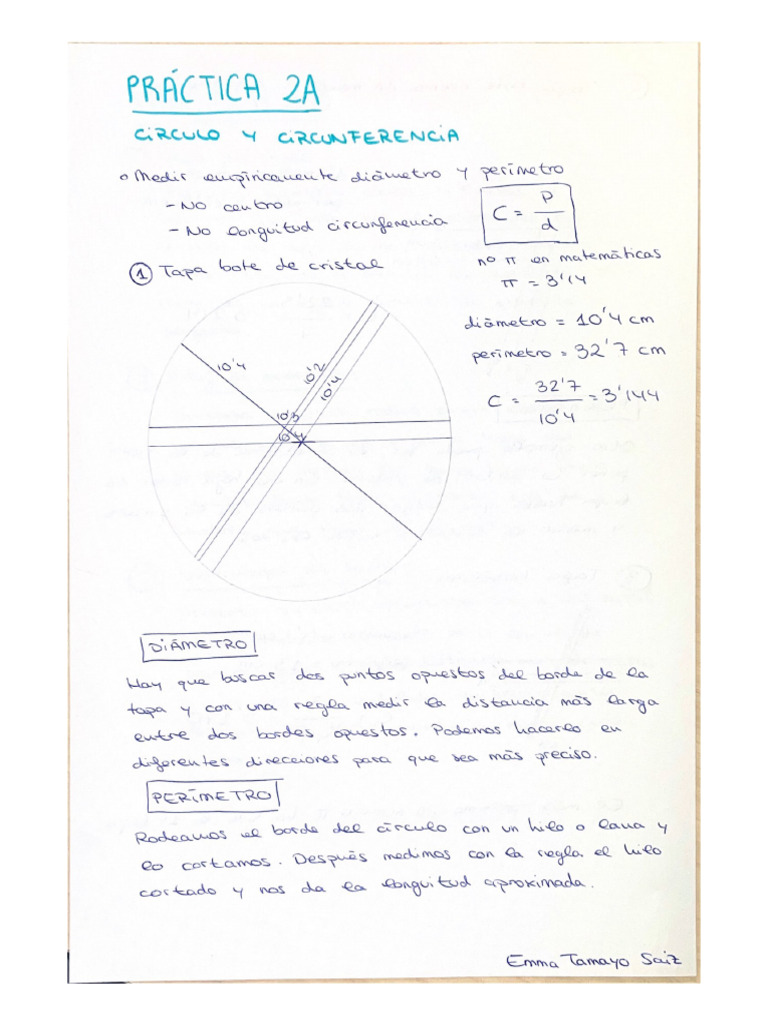 PRÁCTICA 2A
CÍRCULO Y CIRCUNFERENCIA
o Medir empíricamente diámetro y perímetro
- No centro
- No longuitud circunferencia
C = P/d
① Tapa bote de cristal
no π en matemáticas
π = 3'14
diámetro = 10'4 cm
perímetro = 32'7 cm
C = 32'7/10'4 = 3'144
10'4
10'2
10'4
10'3
10'4
DIÁMETRO
Hay que buscar dos puntos opuestos del borde de la
tapa y con una regla medir la distancia más larga
entre dos bordes opuestos. Podemos hacerlo en
diferentes direcciones para que sea más preciso.
PERÍMETRO
Rodeamos el borde del círculo con un hilo o lana y
lo cortamos. Después medimos con la regla el hilo
cortado y nos da la longuitud aproximada.
Emma Tamayo Saiz